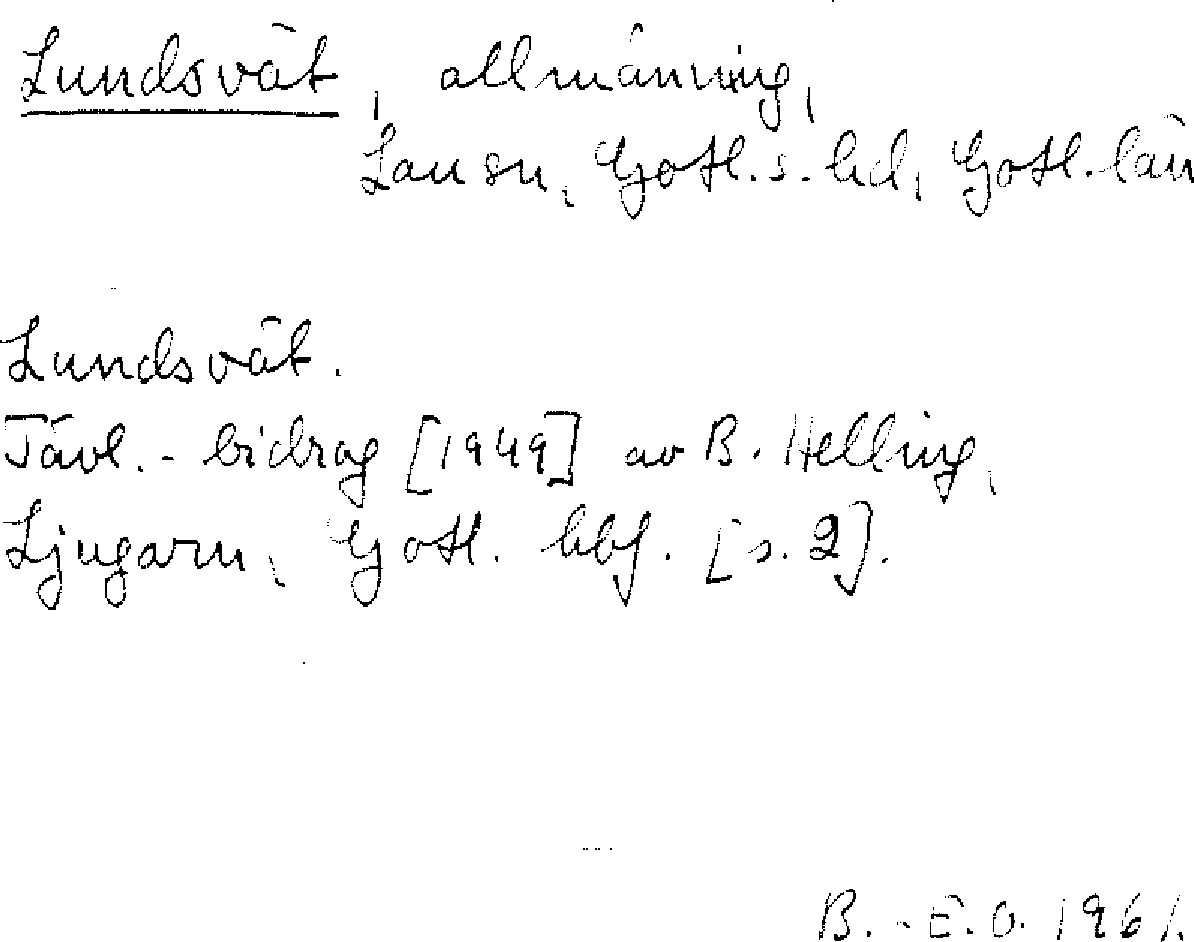 Lundsvät, allmänning,
Lau sn, Gotl. s. hd, Gotl. län
Lundsvät.
Tävl.-bidrag [1949] av B. Helling,
Ljugarn, Gotl. hbf. [s. 2].
B.-E.O. 1961.